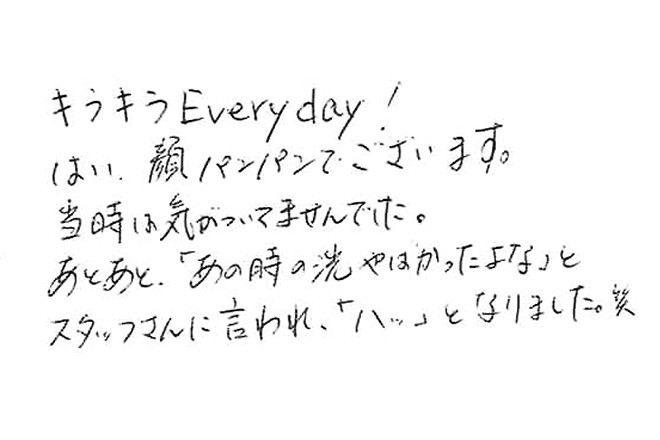 キラキラEveryday!
はい、顔パンパンでございます。
当時は気がついてませんでした。
あとあと、「あの時の洸やばかったよな」と
スタッフさんに言われ、「ハッ」となりました。笑